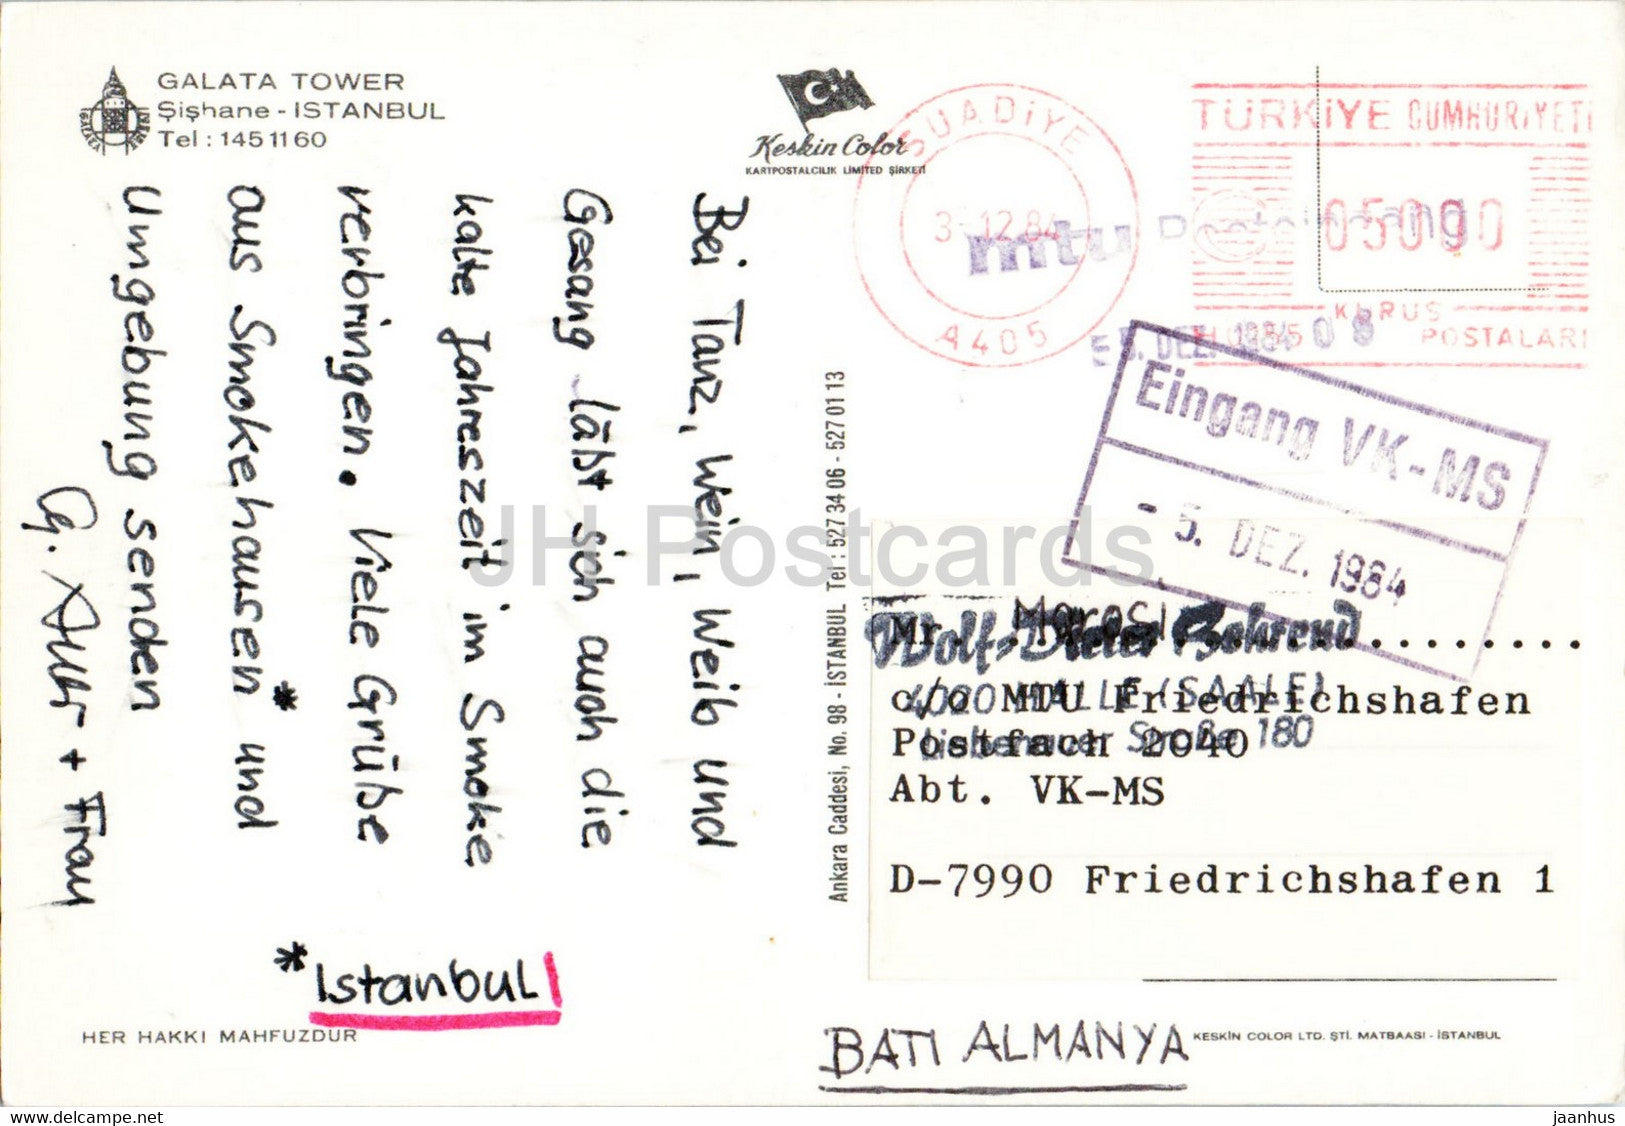 GALATA TOWER
Şişhane - ISTANBUL
Tel : 145 11 60
Keskin Color
KARTPOSTALCILIK LİMİTED ŞİRKETİ
SUADİYE
3-12.84
A405
TÜRKİYE CUMHURİYETİ
05000
KURUŞ
POSTALARI
mtu Posteingang
E 5. DEZ. 1984 08
Eingang VK-MS
- 5. DEZ. 1984
Bei Tanz, Wein, Weib und
Gesang läßt sich auch die
kalte Jahreszeit im Smoke
verbringen. Viele Grüße
aus Smokehausen* und
Umgebung senden
+ Frau
*Istanbul
Ankara Caddesi, No. 98 - İSTANBUL Tel : 527 34 06 - 527 01 13
Wolf-Dieter Behrend
4020 HALLE (SAALE)
Liebenauer Straße 180
Mr.
c/o MTU Friedrichshafen
Postfach 2040
Abt. VK-MS
D-7990 Friedrichshafen 1
HER HAKKI MAHFUZDUR
BATI ALMANYA
KESKİN COLOR LTD. ŞTİ. MATBAASI - İSTANBUL
JH Postcards
www.delcampe.net
jaanhus